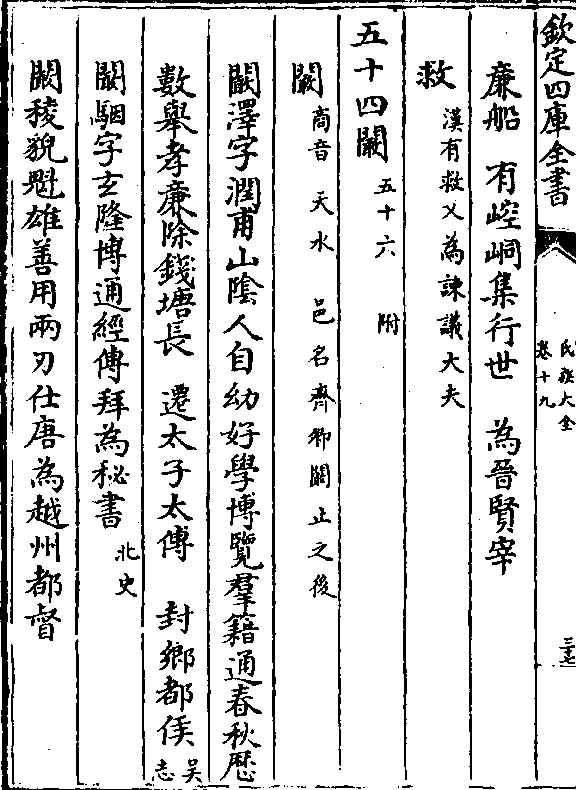 欽定四庫全書
氏族大全
卷十九
廉船　有崆峒集行世　為晉賢宰
救
漢有救乂為諫議大夫
五十四闞　五十六　附
闞
商音　天水　邑名齊卿闞止之後
闞澤字潤甫山陰人自幼好學博覽羣籍通春秋歷
數舉孝廉除錢塘長　遷太子太傅　封鄉都侯吳志
闞駰字玄隆博通經傳拜為秘書北史
闞稜貌魁雄善用兩刃仕唐為越州都督